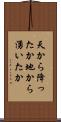 天から降っ
たか地から
湧いたか